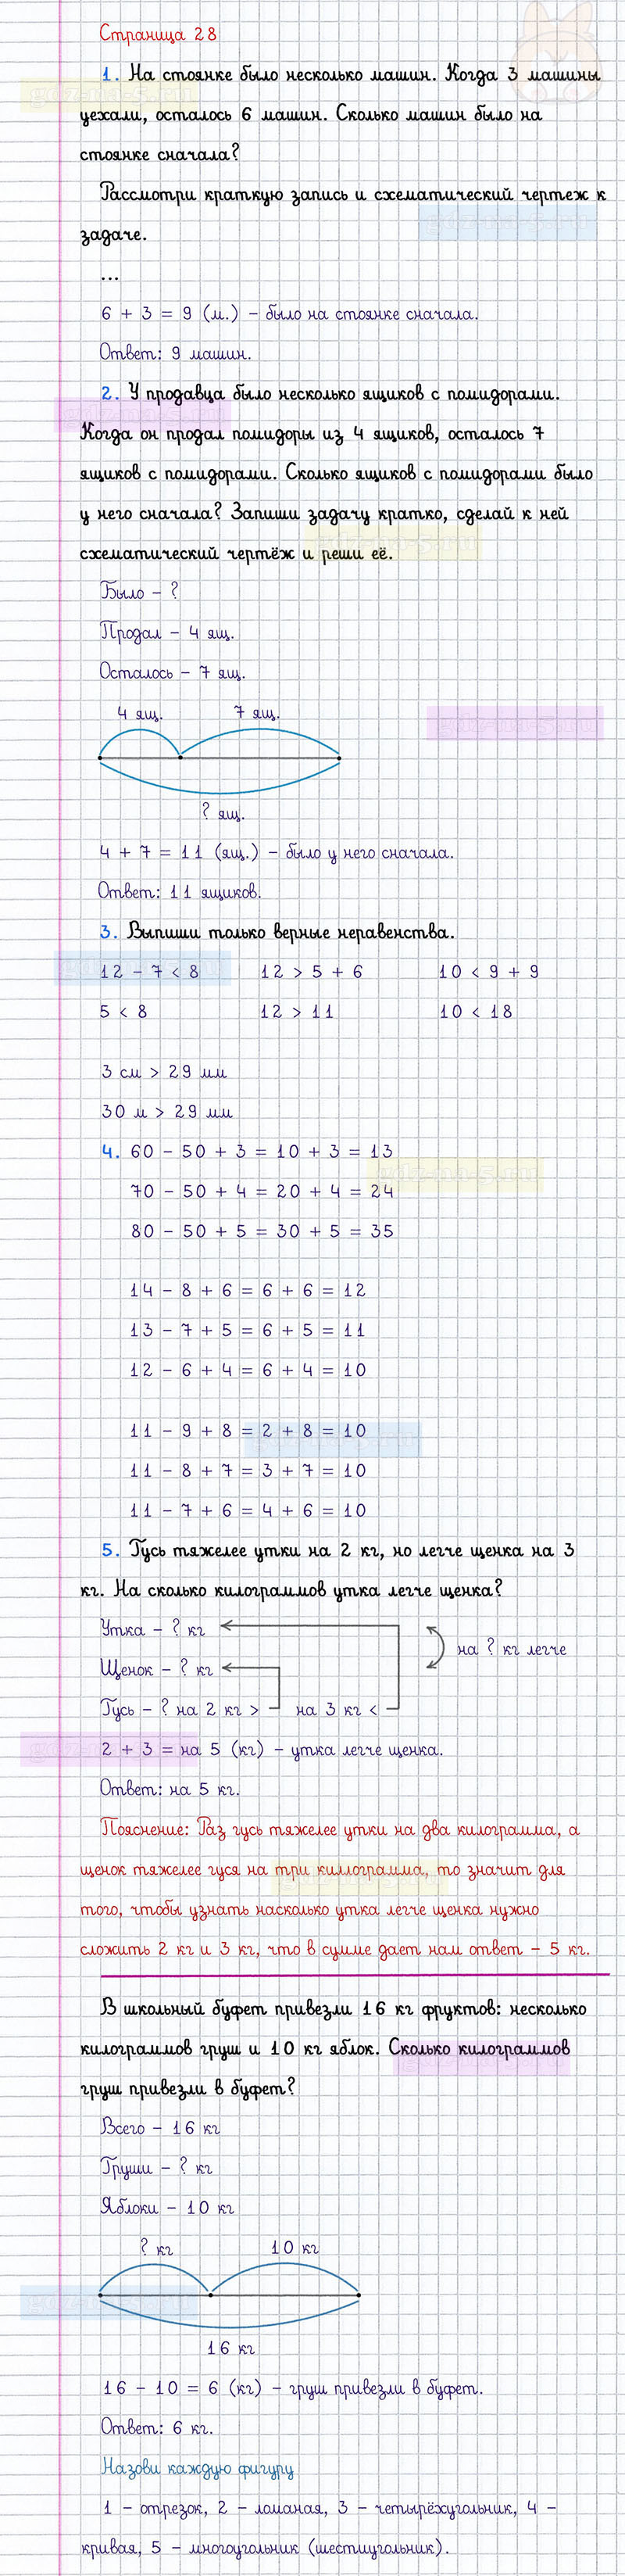 Страница 28
1. На стоянке было несколько машин. Когда 3 машины
уехали, осталось 6 машин. Сколько машин было на
стоянке сначала?
Рассмотри краткую запись и схематический чертеж к
задаче.
...
6 + 3 = 9 (м.) – было на стоянке сначала.
Ответ: 9 машин.
2. У продавца было несколько ящиков с помидорами.
Когда он продал помидоры из 4 ящиков, осталось 7
ящиков с помидорами. Сколько ящиков с помидорами было
у него сначала? Запиши задачу кратко, сделай к ней
схематический чертёж и реши её.
Было – ?
Продал – 4 ящ.
Осталось – 7 ящ.
4 ящ. 7 ящ.
? ящ.
4 + 7 = 11 (ящ.) – было у него сначала.
Ответ: 11 ящиков.
3. Выпиши только верные неравенства.
12 – 7 < 8 12 > 5 + 6 10 < 9 + 9
5 < 8 12 > 11 10 < 18
3 см > 29 мм
30 м > 29 мм
4. 60 – 50 + 3 = 10 + 3 = 13
70 – 50 + 4 = 20 + 4 = 24
80 – 50 + 5 = 30 + 5 = 35
14 – 8 + 6 = 6 + 6 = 12
13 – 7 + 5 = 6 + 5 = 11
12 – 6 + 4 = 6 + 4 = 10
11 – 9 + 8 = 2 + 8 = 10
11 – 8 + 7 = 3 + 7 = 10
11 – 7 + 6 = 4 + 6 = 10
5. Гусь тяжелее утки на 2 кг, но легче щенка на 3
кг. На сколько килограммов утка легче щенка?
Утка – ? кг
на ? кг легче
Щенок – ? кг
Гусь – ? на 2 кг > на 3 кг <
2 + 3 = на 5 (кг) – утка легче щенка.
Ответ: на 5 кг.
Пояснение: Раз гусь тяжелее утки на два килограмма, а
щенок тяжелее гуся на три киллограмма, то значит для
того, чтобы узнать насколько утка легче щенка нужно
сложить 2 кг и 3 кг, что в сумме дает нам ответ – 5 кг.
В школьный буфет привезли 16 кг фруктов: несколько
килограммов груш и 10 кг яблок. Сколько килограммов
груш привезли в буфет?
Всего – 16 кг
Груши – ? кг
Яблоки – 10 кг
? кг 10 кг
16 кг
16 – 10 = 6 (кг) – груш привезли в буфет.
Ответ: 6 кг.
Назови каждую фигуру
1 – отрезок, 2 – ломаная, 3 – четырёхугольник, 4 –
кривая, 5 – многоугольник (шестиугольник).